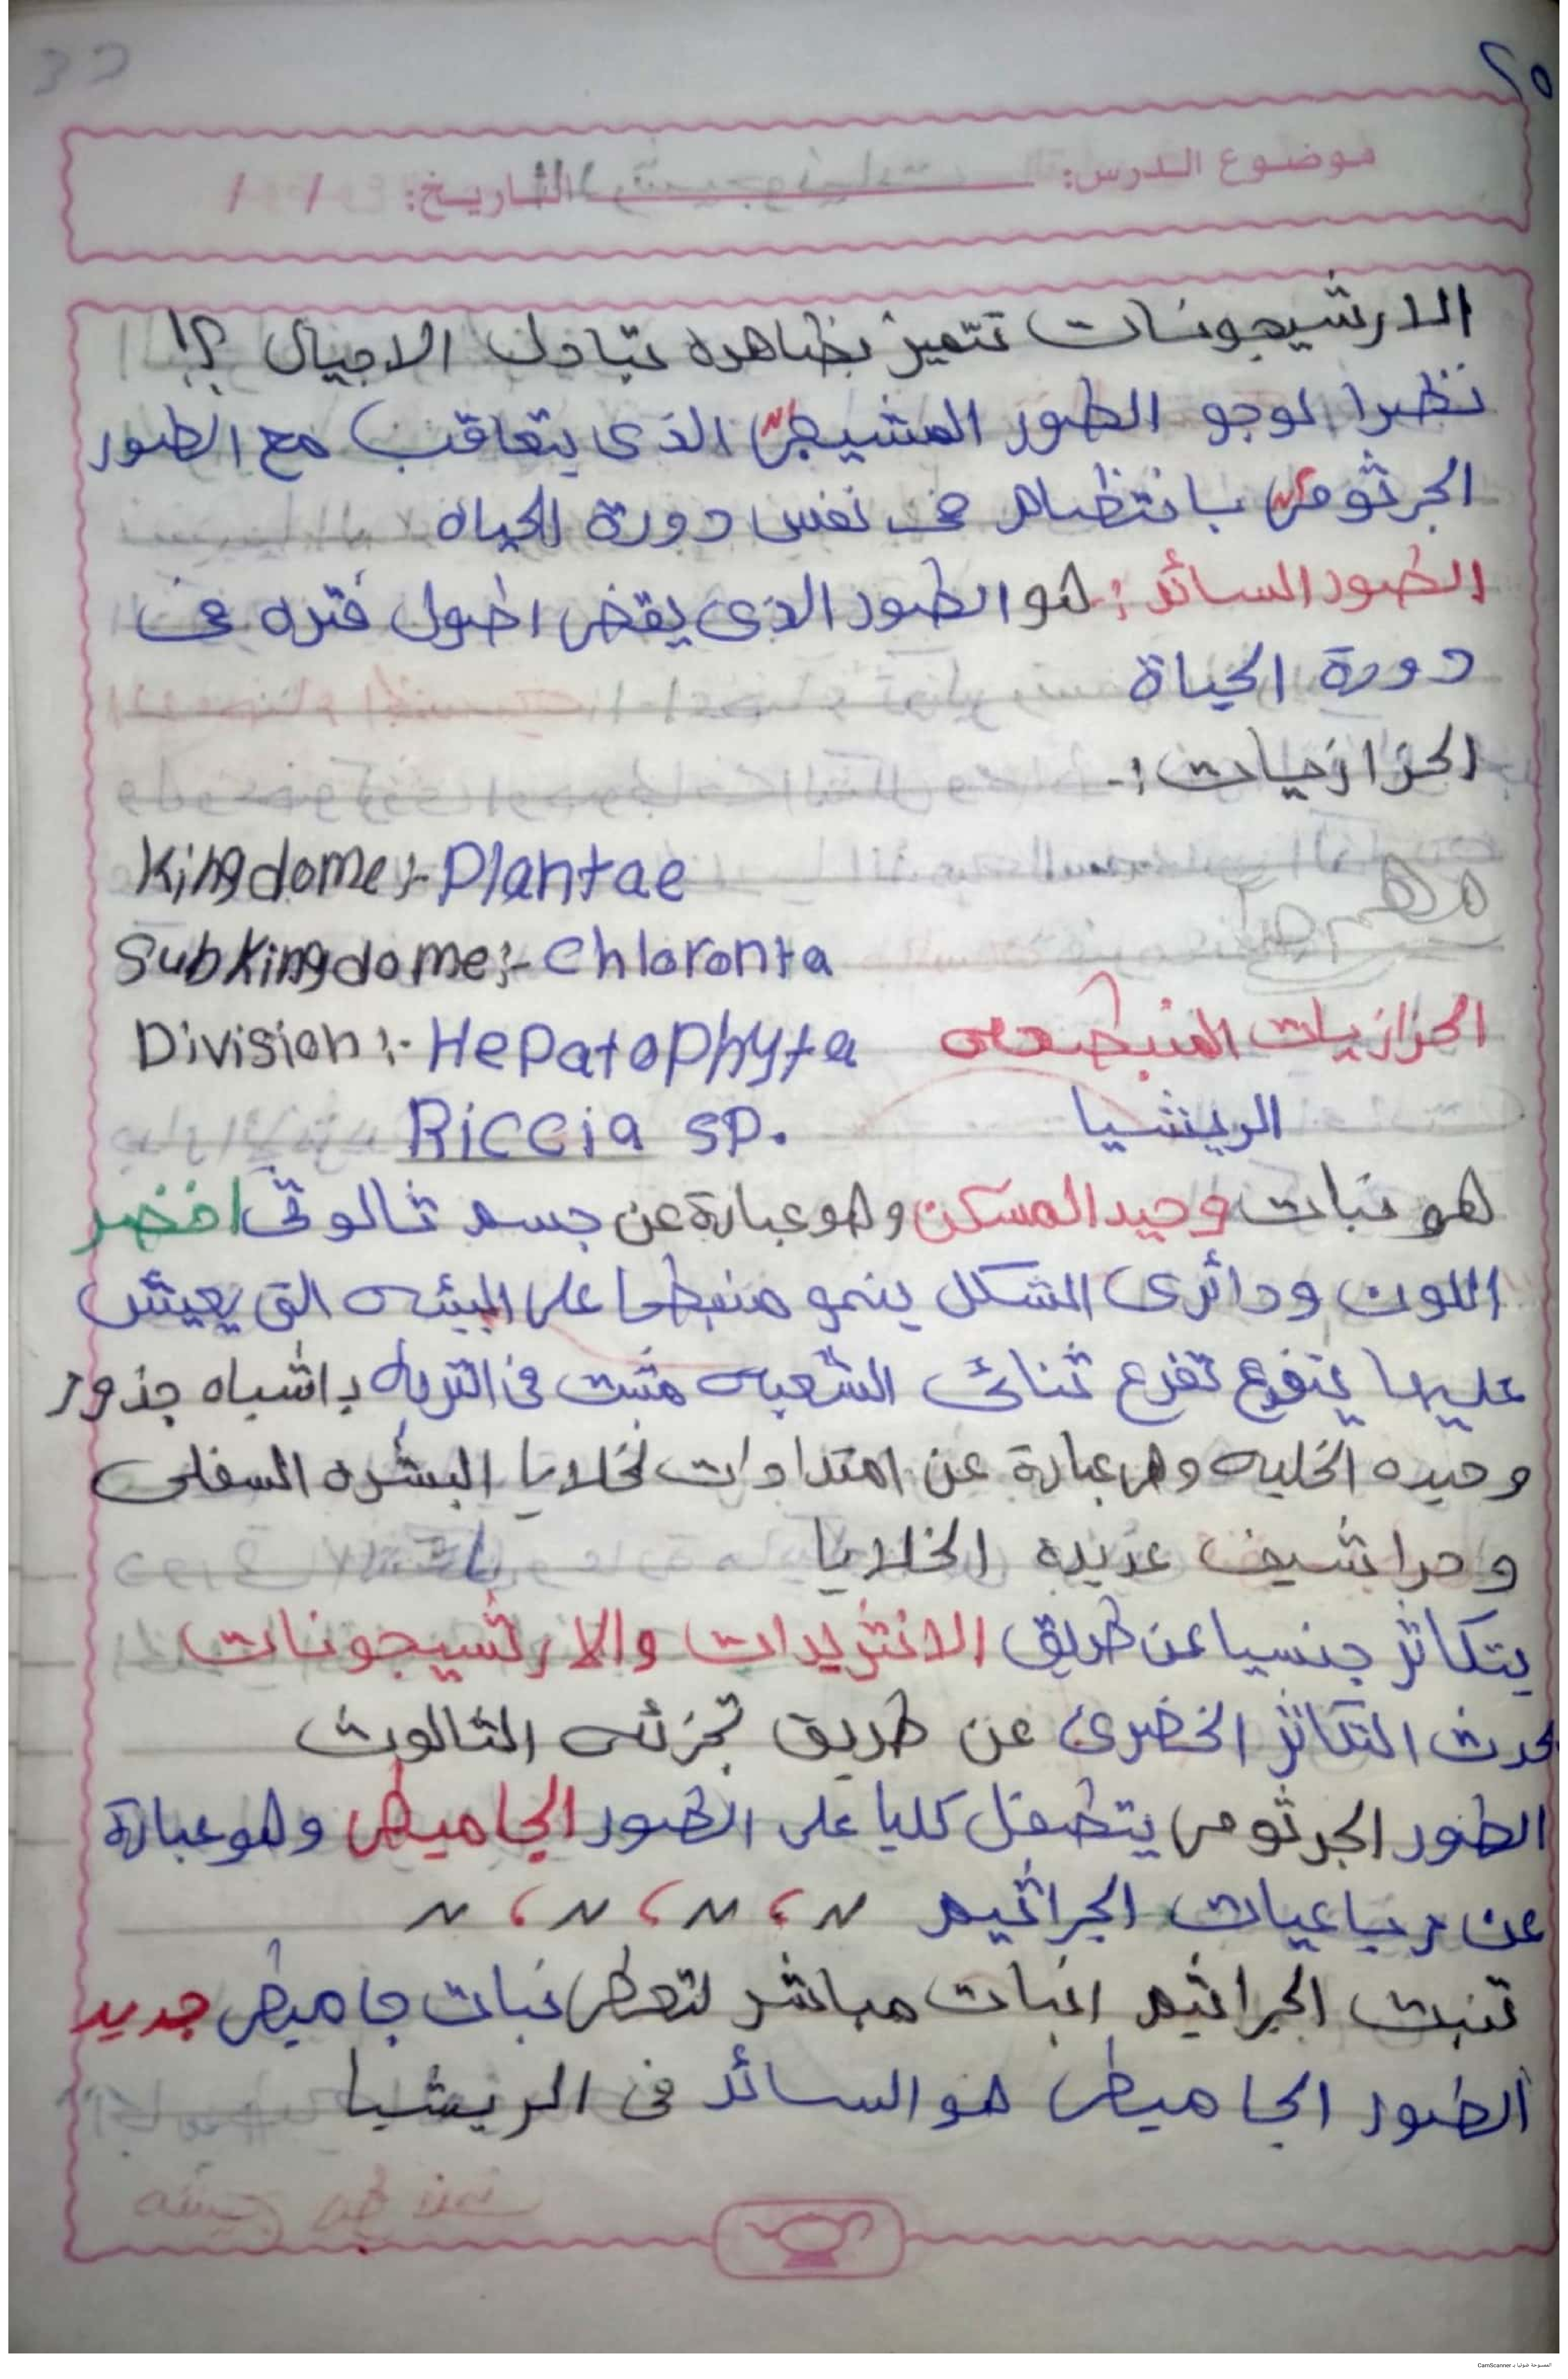 ٢٥
موضوع الدرس: التاريخ: / /
الارشيجونات تتميز بظاهره تبادل الاجيال ؟!
نظرا لوجو الطور المشيجى الذى يتعاقب مع الطور
الجرثومى بانتظام فى نفس دورة الحياه
الطور السائد :- هو الطور الذى يقضى اطول فتره فى
دورة الحياة
الحزازيات :-
Kingdome:- Plantae
Subkingdome:- Chloronta
Division:- Hepatophyta الحزازيات المنبطحه
Riccia sp. الريشيا
هو نبات وحيد المسكن وهو عبارة عن جسم ثالوثى اخضر
اللون ودائرى الشكل ينمو منبطحا على البيئه التى يعيش
عليها يتفرع تفرع ثنائى الشعبه مثبت فى التربه باشباه جذور
وحيده الخليه وهى عبارة عن امتدادات لخلايا البشره السفلى
وحراشيف عديده الخلايا
يتكاثر جنسيا عن طريق الانثريدات والارشيجونات
يحدث التكاثر الخضرى عن طريق تجزئه الثالوث
الطور الجرثومى يتطفل كليا على الطور الجاميطى وهو عبارة
عن رباعيات الجراثيم ن ، ن ، ن ، ن
تنبت الجراثيم انبات مباشر لتعطى نبات جاميطى جديد
الطور الجاميطى هو السائد فى الريشيا
الممسوحة ضوئيا بـ CamScanner